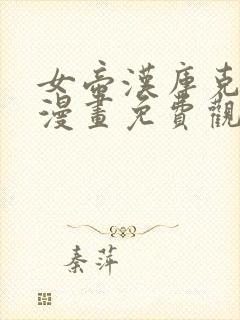 女帝漢庫克
漫畫免費觀
秦萍